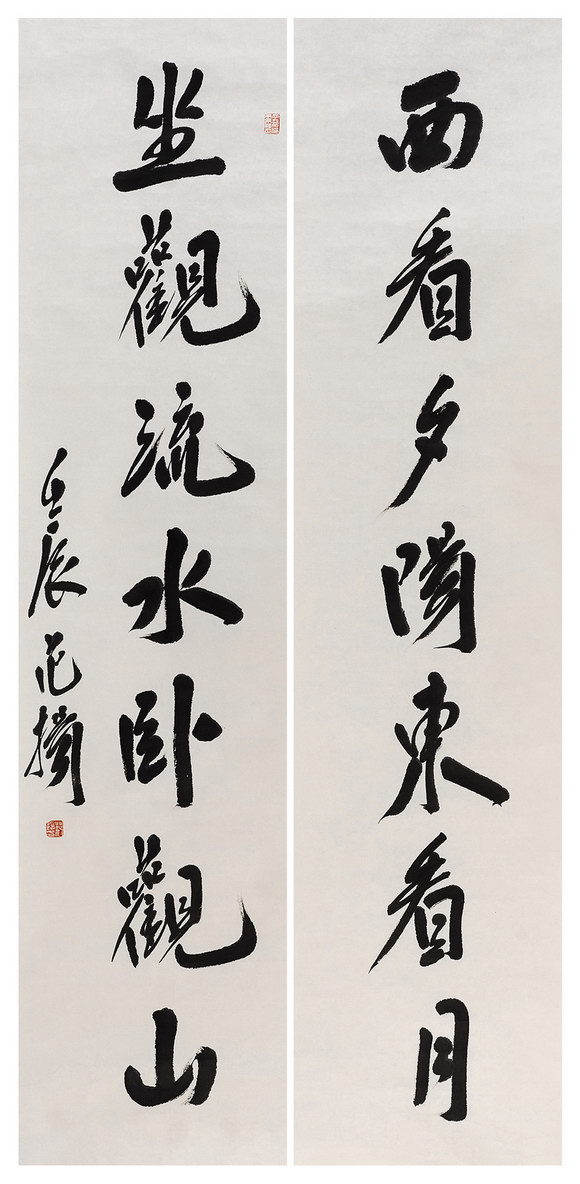 西看夕陽東看月
坐觀流水卧觀山
壬辰范揚